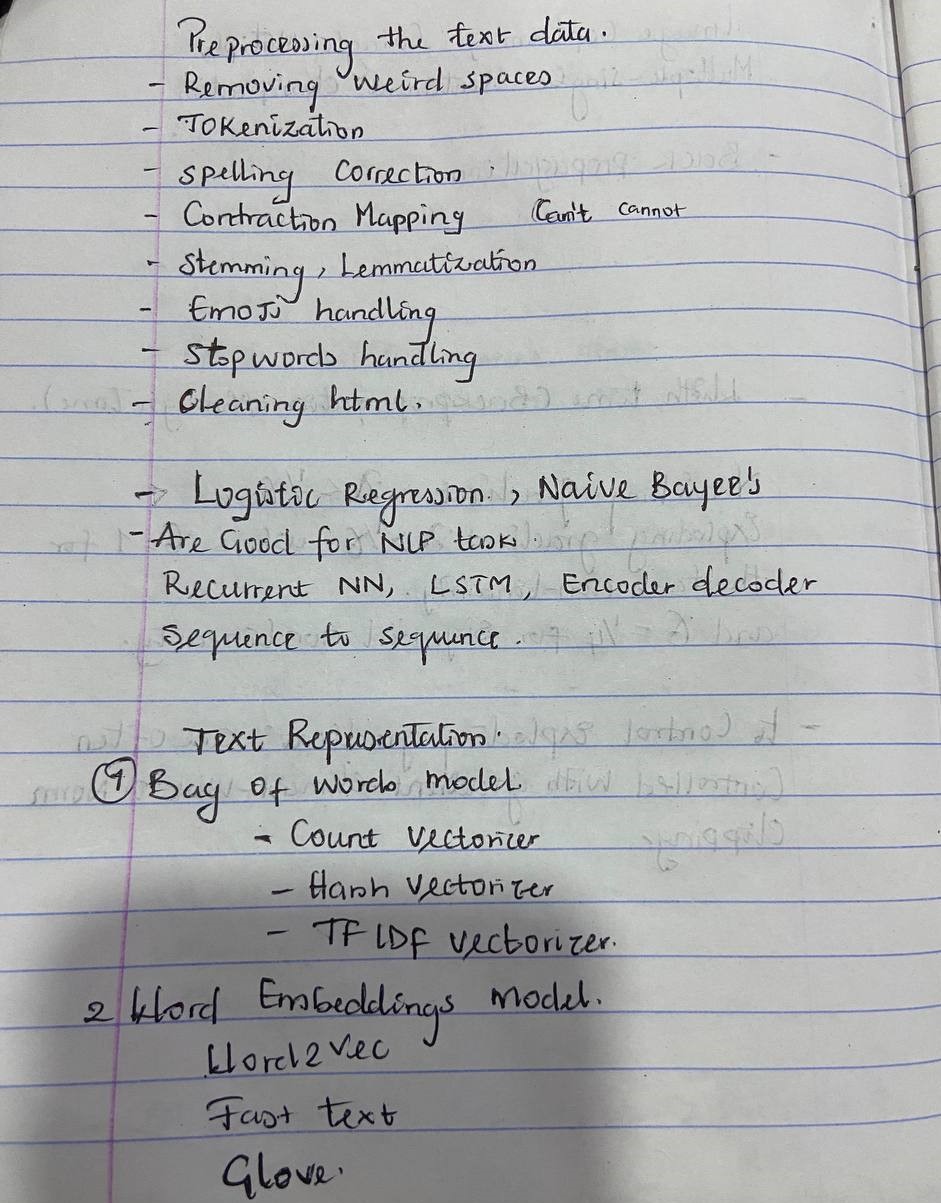 Preprocessing the text data.
- Removing weird spaces
- Tokenization
- spelling Correction
- Contraction Mapping Can't cannot
- Stemming, Lemmatization
- Emoji handling
- Stopwords handling
- Cleaning html.
- Logistic Regression, Naive Bayee's
- Are Good for NLP task.
Recurrent NN, LSTM, Encoder decoder
Sequence to sequnce.
Text Representation.
1 Bag of words model
- Count vectorizer
- Hash vectorizer
- TFIDF vectorizer.
2 Word Embeddings model.
Word2vec
Fast text
Glove.